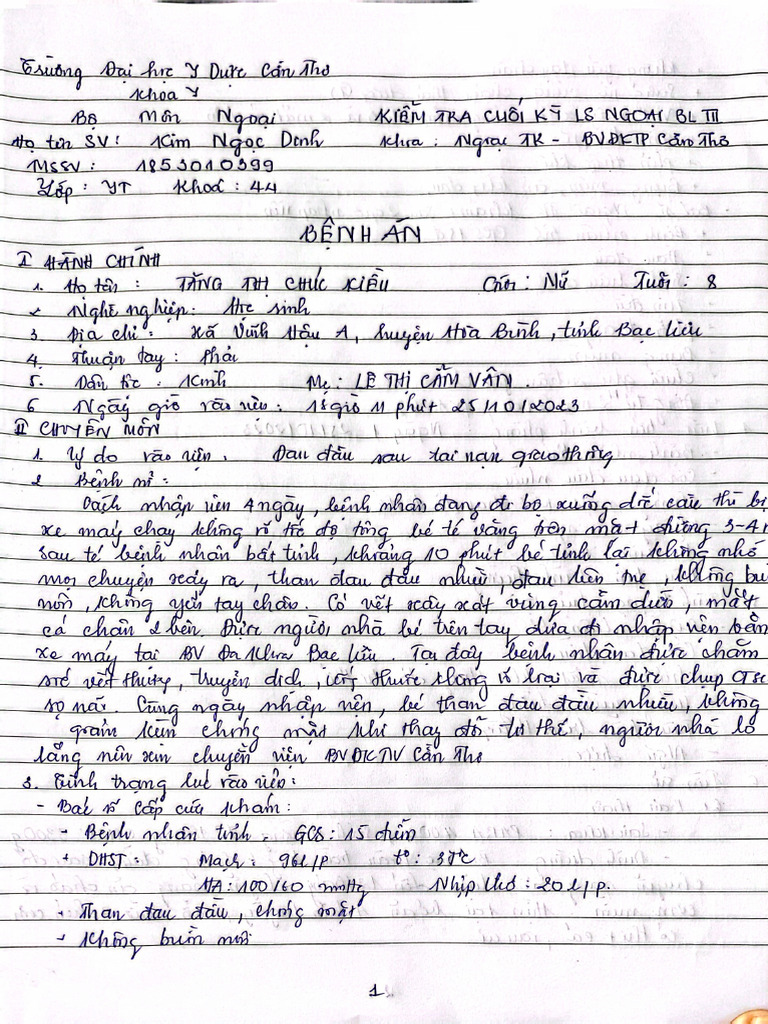 Trường Đại học Y Dược Cần Thơ
Khoa Y
Bộ Môn Ngoại KIỂM TRA CUỐI KỲ LS NGOẠI BL III
Họ tên SV: Kim Ngọc Danh Khoa: Ngoại TK - BVĐKTP Cần Thơ
MSSV: 1853010399
Lớp: YT Khoá: 44
BỆNH ÁN
I HÀNH CHÍNH
1. Họ tên: TĂNG THỊ CHÚC KIỀU Giới: Nữ Tuổi: 8
2 Nghề nghiệp: Học sinh
3. Địa chỉ: Xã Vĩnh Hậu A, huyện Hòa Bình, tỉnh Bạc Liêu
4. Thuận tay: Phải
5. Dân tộc: Kinh Mẹ: LÊ THỊ CẨM VÂN.
6 Ngày giờ vào viện: 18 giờ 11 phút 25/10/2023
II CHUYÊN MÔN
1. Lý do vào viện. Đau đầu sau tai nạn giao thông
2 Bệnh sử:
Cách nhập viện 4 ngày, bệnh nhân đang đi bộ xuống dốc cầu thì bị
xe máy chạy không rõ tốc độ tông, bé té văng trên mặt đường 3-4m
sau té bệnh nhân bất tỉnh, khoảng 10 phút bé tỉnh lại không nhớ
mọi chuyện xảy ra, than đau đầu nhiều, đau liên tục, không bu
nôn, không yếu tay chân. Có vết xây xát vùng cằm dưới, mắt
cá chân 2 bên. Được người nhà bế trên tay đưa đi nhập viện bằn
xe máy tại BV Đa Khoa Bạc Liêu. Tại đây bệnh nhân được chăm
sóc vết thương, truyền dịch, uống thuốc không rõ loại và được chụp
sọ não. Cùng ngày nhập viện, bé than đau đầu nhiều, không
giảm kèm chóng mặt khi thay đổi tư thế, người nhà lo
lắng nên xin chuyển viện BVĐKTW Cần Thơ
3. Tình trạng lúc vào viện:
- Bác sĩ cấp cứu khám:
+ Bệnh nhân tỉnh, GCS: 15 điểm
+ DHST: Mạch: 96l/p t°: 37°C
HA: 100/60 mmHg Nhịp thở: 20l/p.
+ Than đau đầu, chóng mặt
+ Không buồn nôn
1